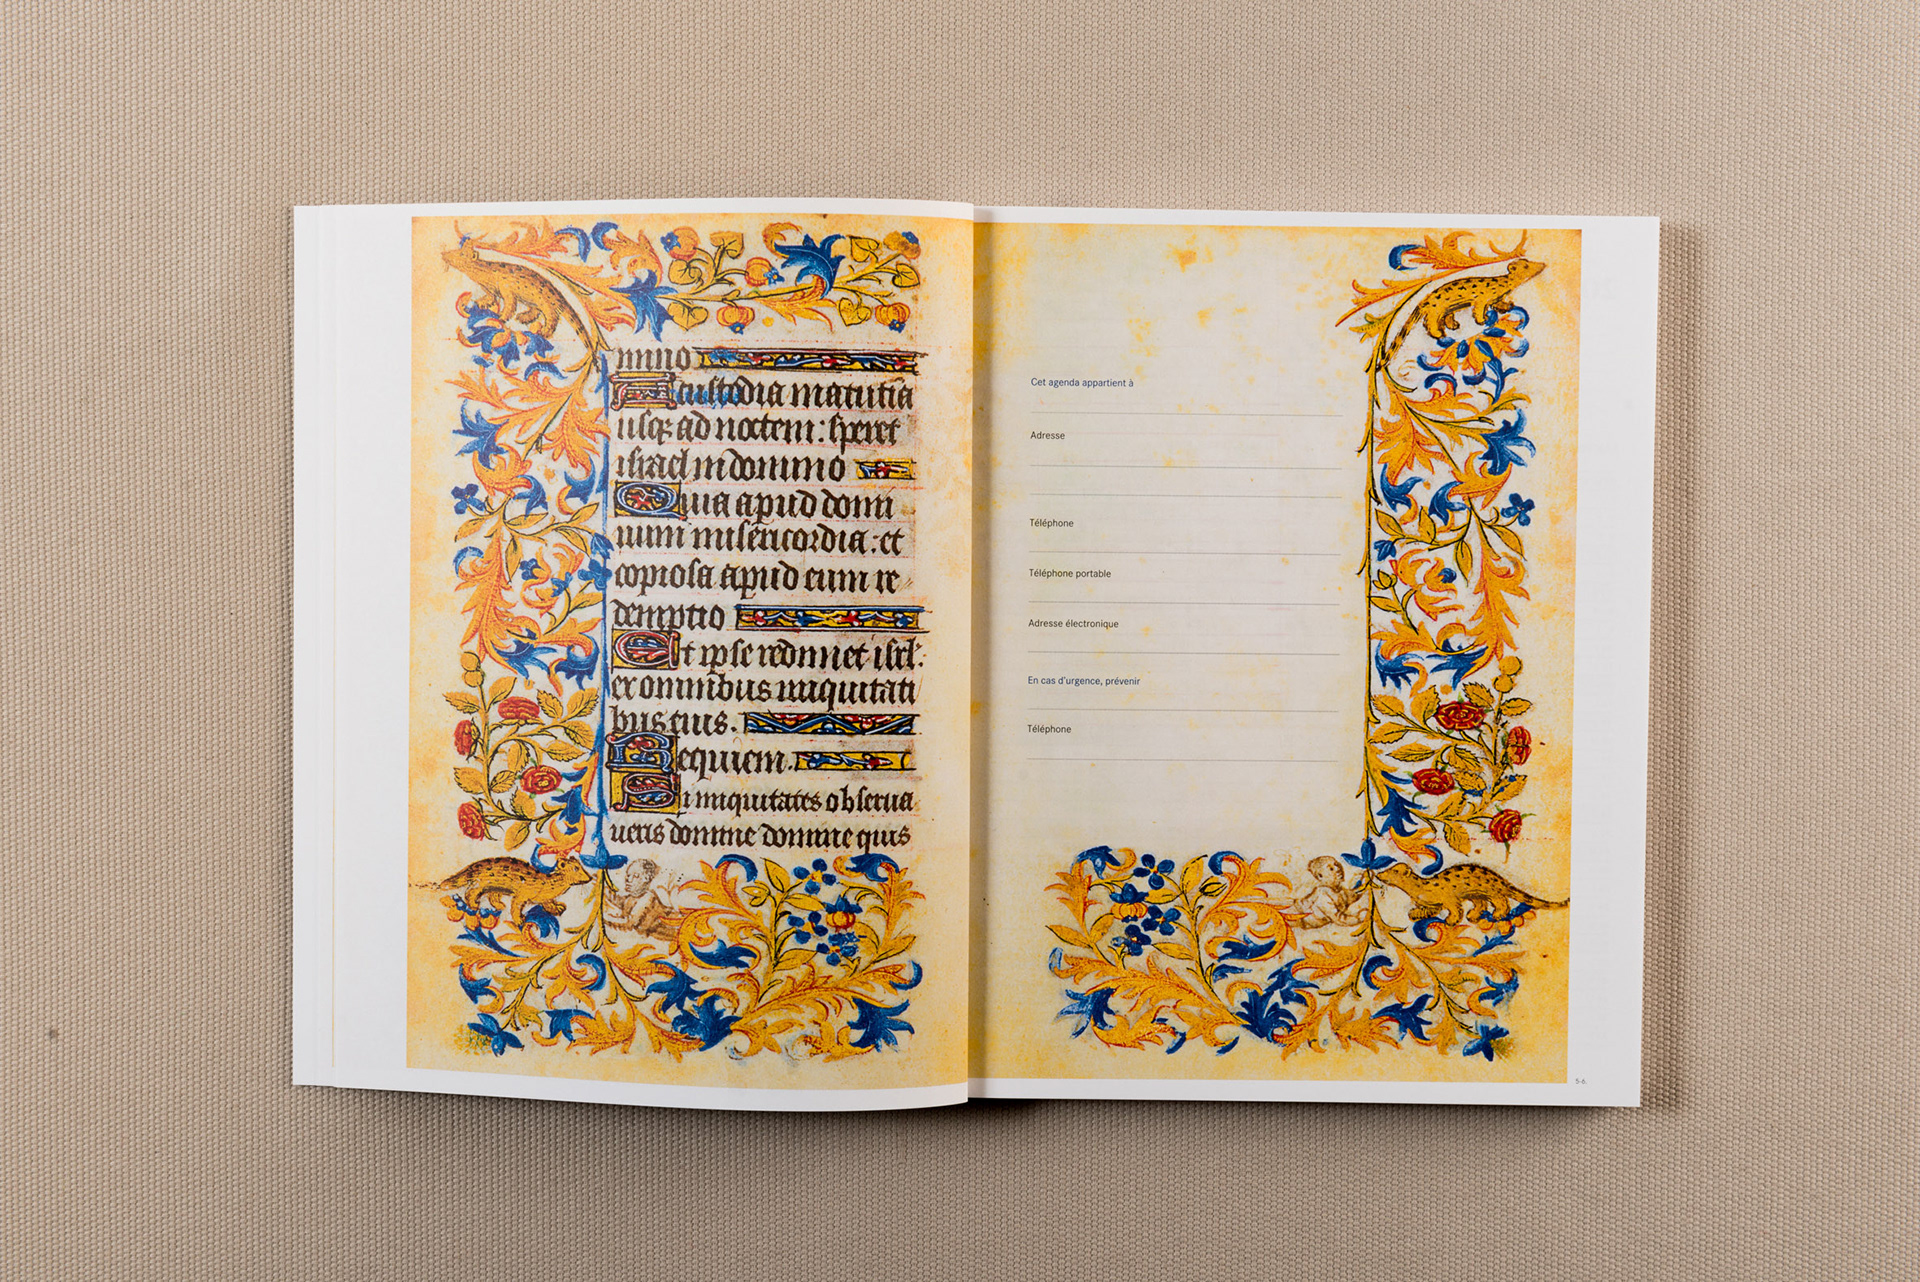 mino
A custodia matutia
usq; ad noctem: speret
israel in domino
Quia apud domi
num misericordia: et
copiosa apud eum re
demptio
Et ipse redimet isrl:
ex omnibus iniquitati
bus eius.
Requiem.
Si iniquitates obserua
ueris domine domine quis
Cet agenda appartient à
Adresse
Téléphone
Téléphone portable
Adresse électronique
En cas d'urgence, prévenir
Téléphone
5-6.